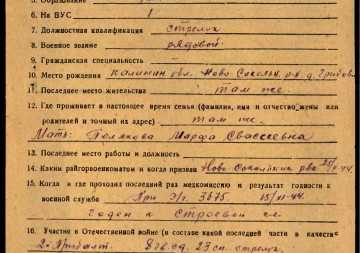 5. Образование
6. На ВУС 1
7. Должностная квалификация стрелок
8. Военное звание рядовой
9. Гражданская специальность —
10. Место рождения Калинин. обл. Ново-Сокольн. р-н д.
11. Последнее место жительства там же.
12. Где проживает в настоящее время семья (фамилия, имя и отчество жены или
родителей и точный их адрес) там же.
Мать: Полякова Марфа
13. Последнее место работы и должность
14. Каким райгорвоенкоматом и когда призван Ново-Сокольник рвк
15. Когда и где проходил последний раз медкомиссию и результат годности к
военной службе При э/г. 3675. 44.
годен к строевой сл
16. Участие в Отечественной войне (в составе какой последней части в качестве
2-Прибалт. 8 гв. сд. 23 сп. стрелк.